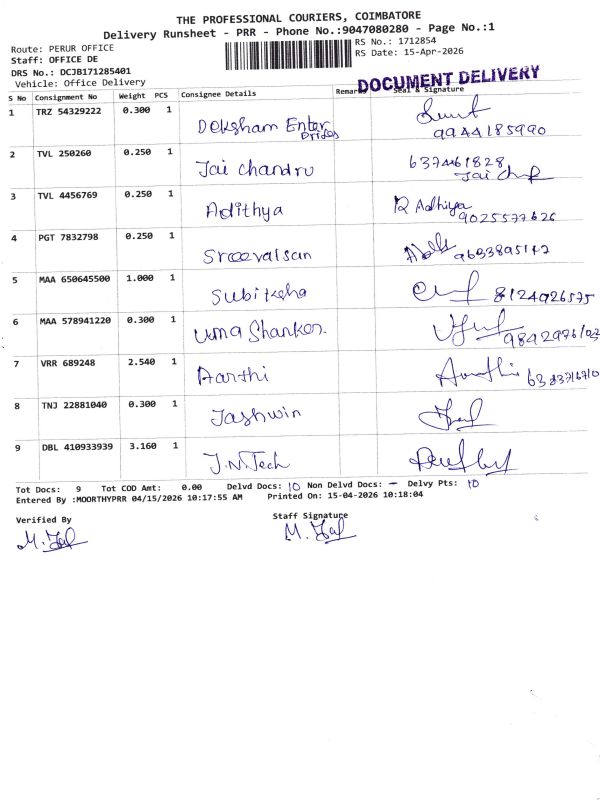 THE PROFESSIONAL COURIERS, COIMBATORE
Delivery Runsheet - PRR - Phone No.:9047080280 - Page No.:1
Route: PERUR OFFICE
RS No.: 1712854
Staff: OFFICE DE
RS Date: 15-Apr-2026
DRS No.: DCJB171285401
Vehicle: Office Delivery
DOCUMENT DELIVERY
S No Consignment No Weight PCS Consignee Details Remarks Seal & Signature
1 TRZ 54329222 0.300 1 Deksham Enter
Prides
9944185990
2 TVL 250260 0.250 1 Jai chandru 637461828
Jai
3 TVL 4456769 0.250 1 Adithya R Adhiya
9025577626
4 PGT 7832798 0.250 1 Sreevalsan
5 MAA 650645500 1.000 1 Subiksha 8124926575
6 MAA 578941220 0.300 1 Uma Shanker.
7 VRR 689248 2.540 1 Aarthi
8 TNJ 22881040 0.300 1 Jashwin
9 DBL 410933939 3.160 1 J.N.Tech
Tot Docs: 9 Tot COD Amt: 0.00 Delvd Docs: 10 Non Delvd Docs: - Delvy Pts: 10
Entered By :MOORTHYPRR 04/15/2026 10:17:55 AM Printed On: 15-04-2026 10:18:04
Verified By
Staff Signature
M.
M.